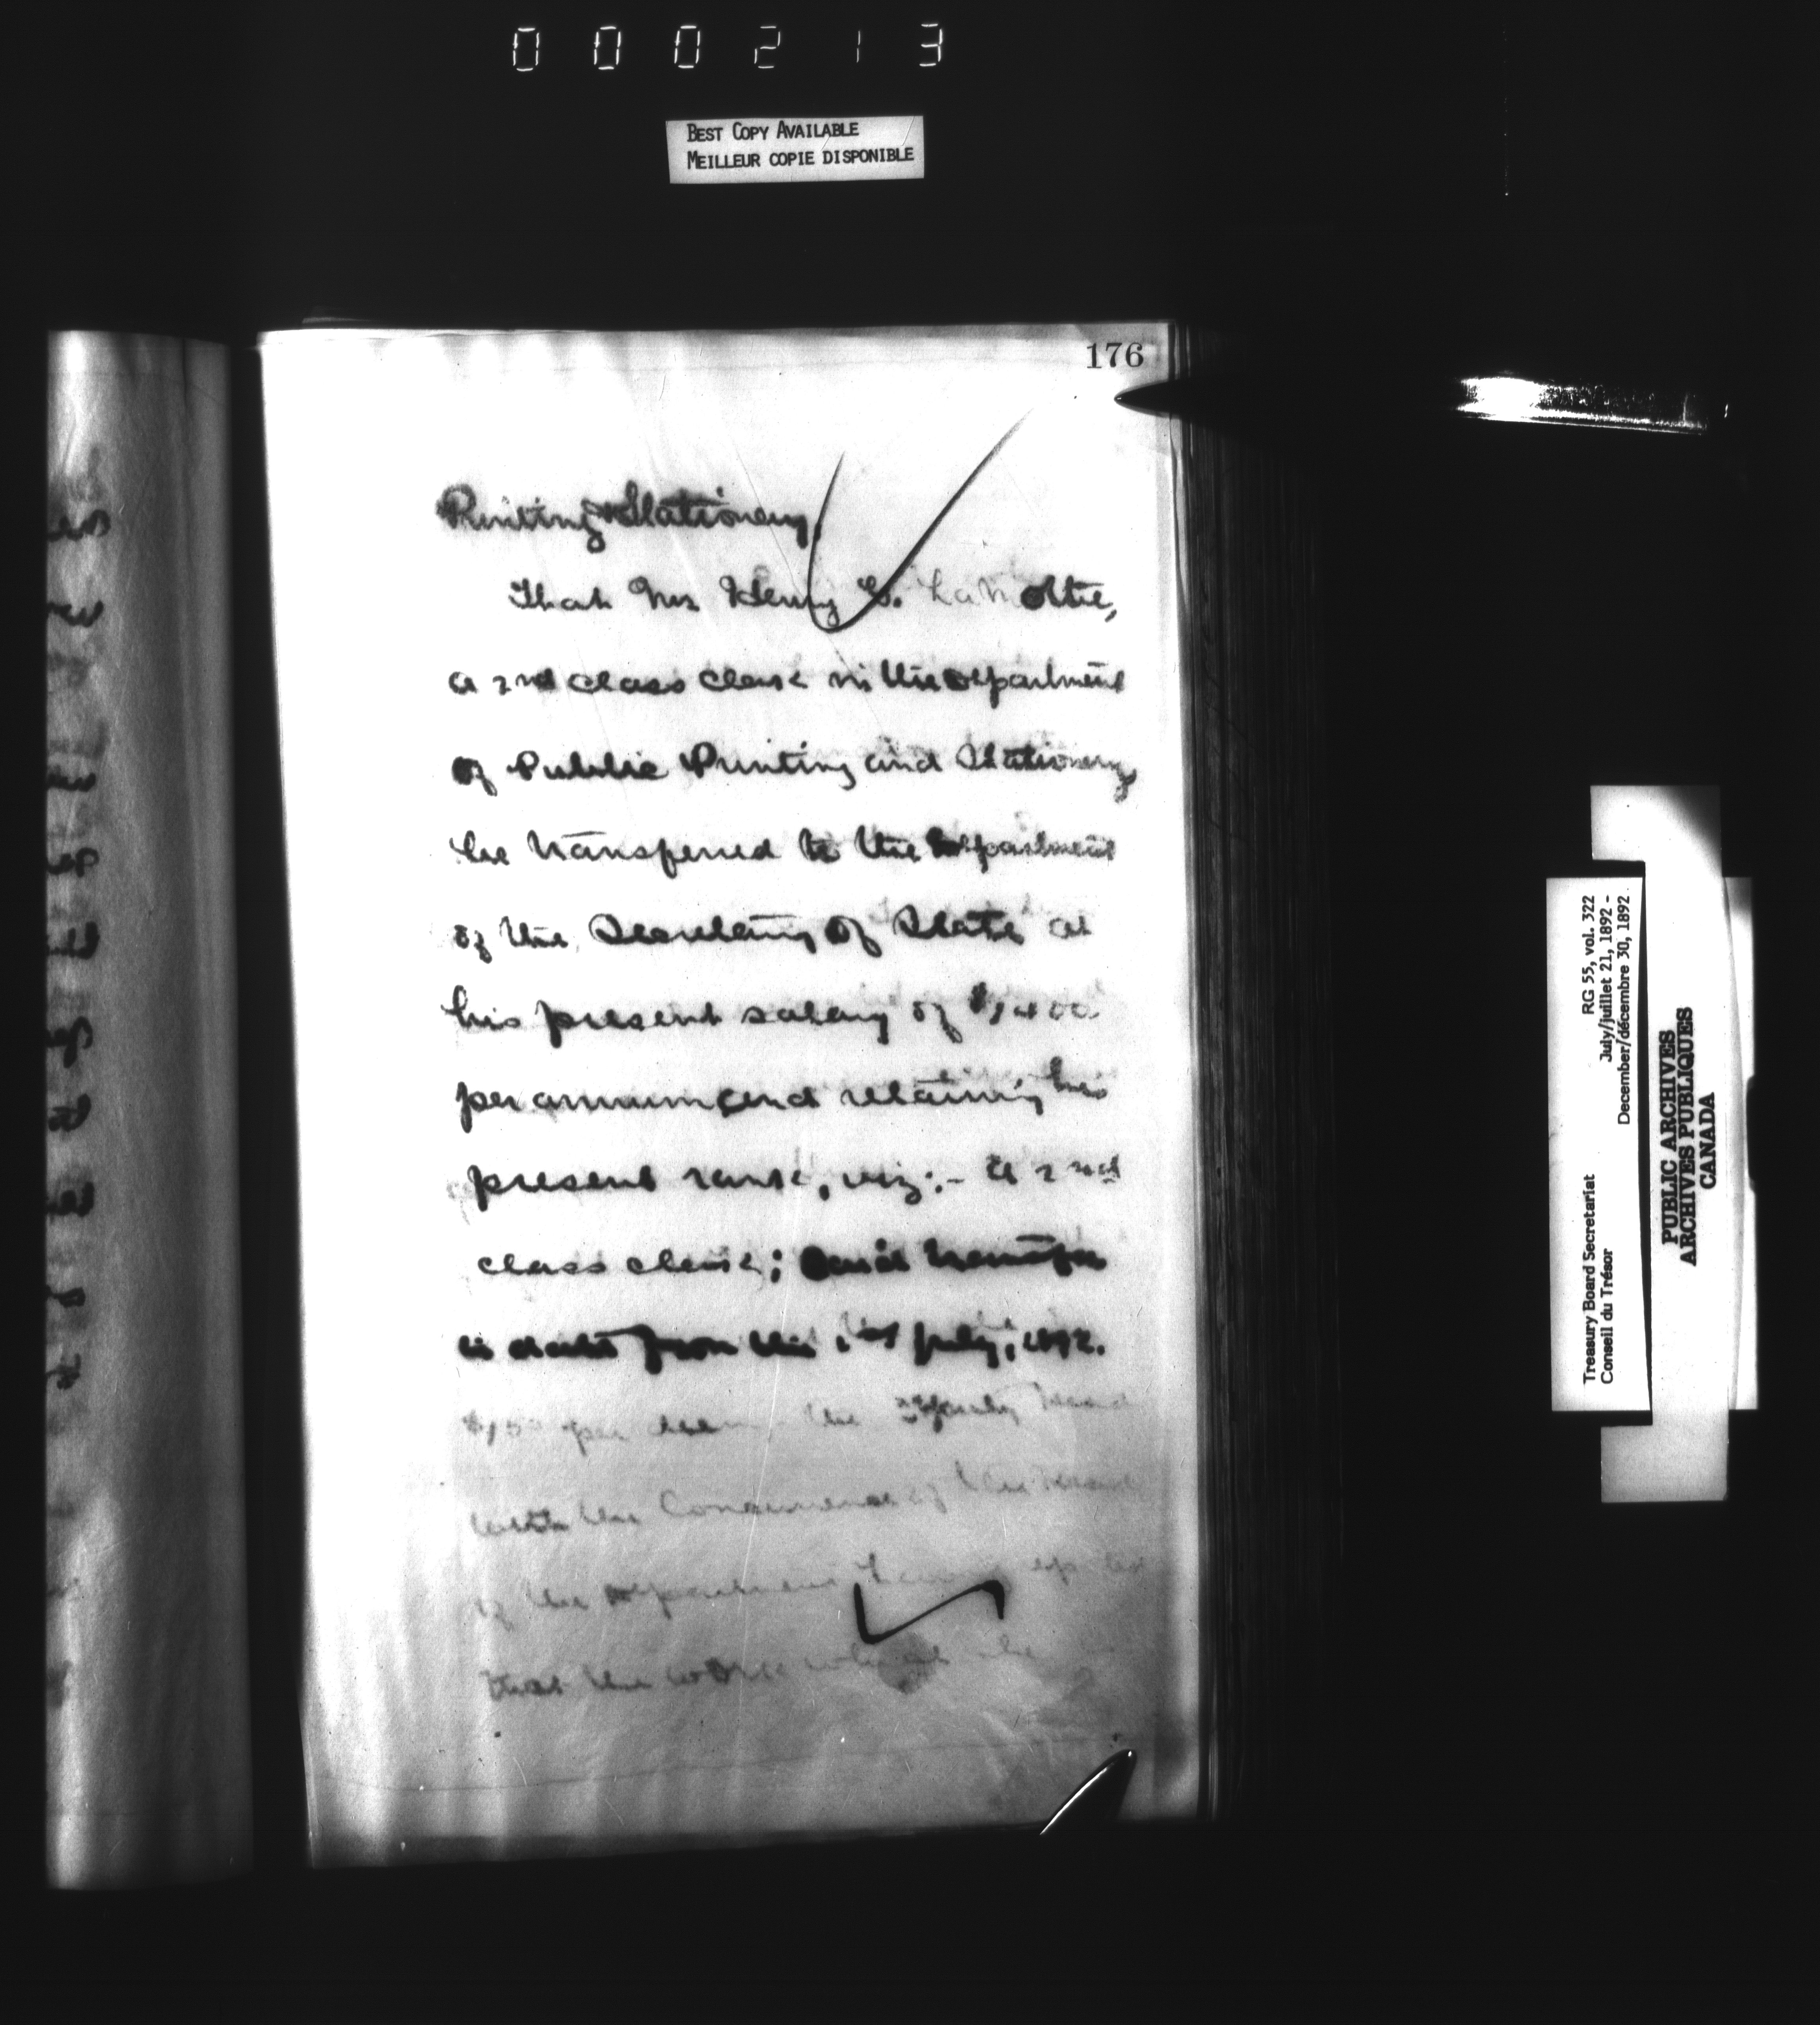 000213
BEST COPY AVAILABLE
MEILLEUR COPIE DISPONIBLE
176
Printing & Stationery.
That Mr Henry G. LaMothe,
a 2nd class clerk in the Department
of Public Printing and Stationery,
be transferred to the Department
of the Secretary of State at
his present salary of $1400
per annum, and retaining his
present rank, viz:- a 2nd
class clerk; said transfer
to date from the 1st July, 1892.
$1.50 per diem the Deputy Head
with the concurrence of the Head
of the Department having
that the work which he
RG 55, vol. 322
July/juillet 21, 1892 -
December/décembre 30, 1892.
Treasury Board Secretariat
Conseil du Trésor
PUBLIC ARCHIVES
ARCHIVES PUBLIQUES
CANADA